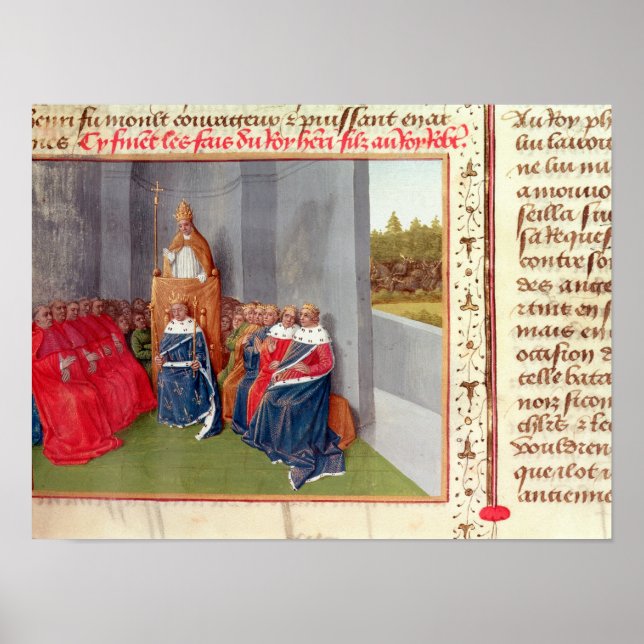 henri fu moult courageux & puissant en ar
mes Cy finent les fais du Roy henri filz au Roy Robt.
Au Roy ph
ne lui ma
amouuo
seilla sur
sa reques
contre son
des ange
tint en s
mais en
occision d
telle bata
noir si con
vouldren
que ilot
antienne